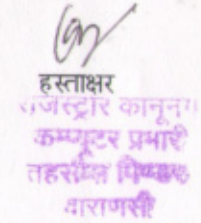 हस्ताक्षर
रजिस्ट्रार कानूनगो
कम्प्यूटर प्रभारी
तहसील पिण्डरा
वाराणसी